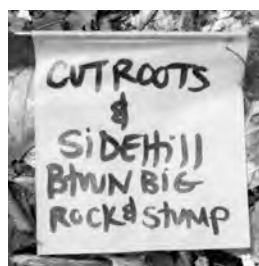 CUT ROOTS
&
SiDEHill
BTWN BiG
ROCK & STUMP